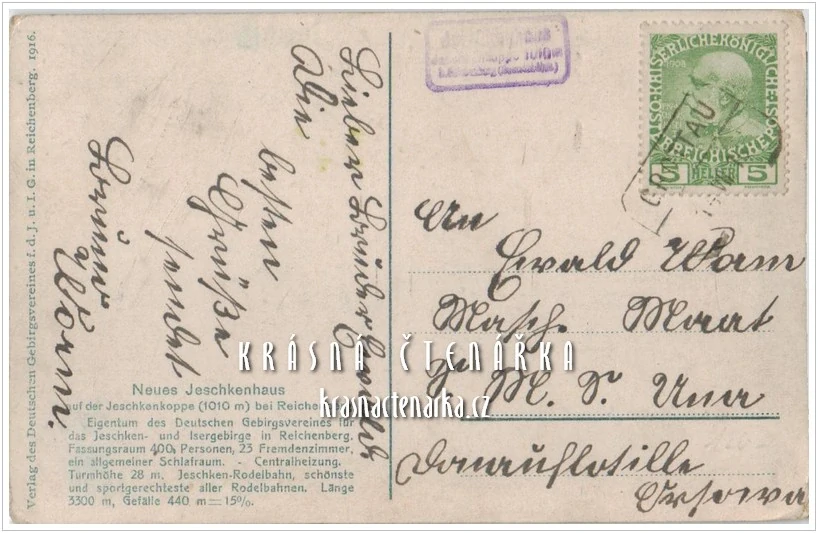 Verlag des Deutschen Gebirgsvereines f. d. J. u. I. G. in Reichenberg. 1916.
Lieber Bruder Ewald
Die
besten
Grüße
sendet
Bruno
Worm.
Neues Jeschkenhaus
auf der Jeschkenkoppe (1010 m) bei Reichenberg
Eigentum des Deutschen Gebirgsvereines für
das Jeschken- und Isergebirge in Reichenberg.
Fassungsraum 400 Personen, 23 Fremdenzimmer,
ein allgemeiner Schlafraum. - Centralheizung.
Turmhöhe 28 m. Jeschken-Rodelbahn, schönste
und sportgerechteste aller Rodelbahnen. Länge
3300 m, Gefälle 440 m = 15%.
KRÁSNÁ ČTENÁŘKA
krasnactenarka.cz
1010 m
KAISERLICHE KÖNIGLICHE
ÖSTERREICHISCHE POST
5 HELLER 5
An
Ewald Worm
Masch. Maat
S. M. S. Una
Donauflotille
Orsowa